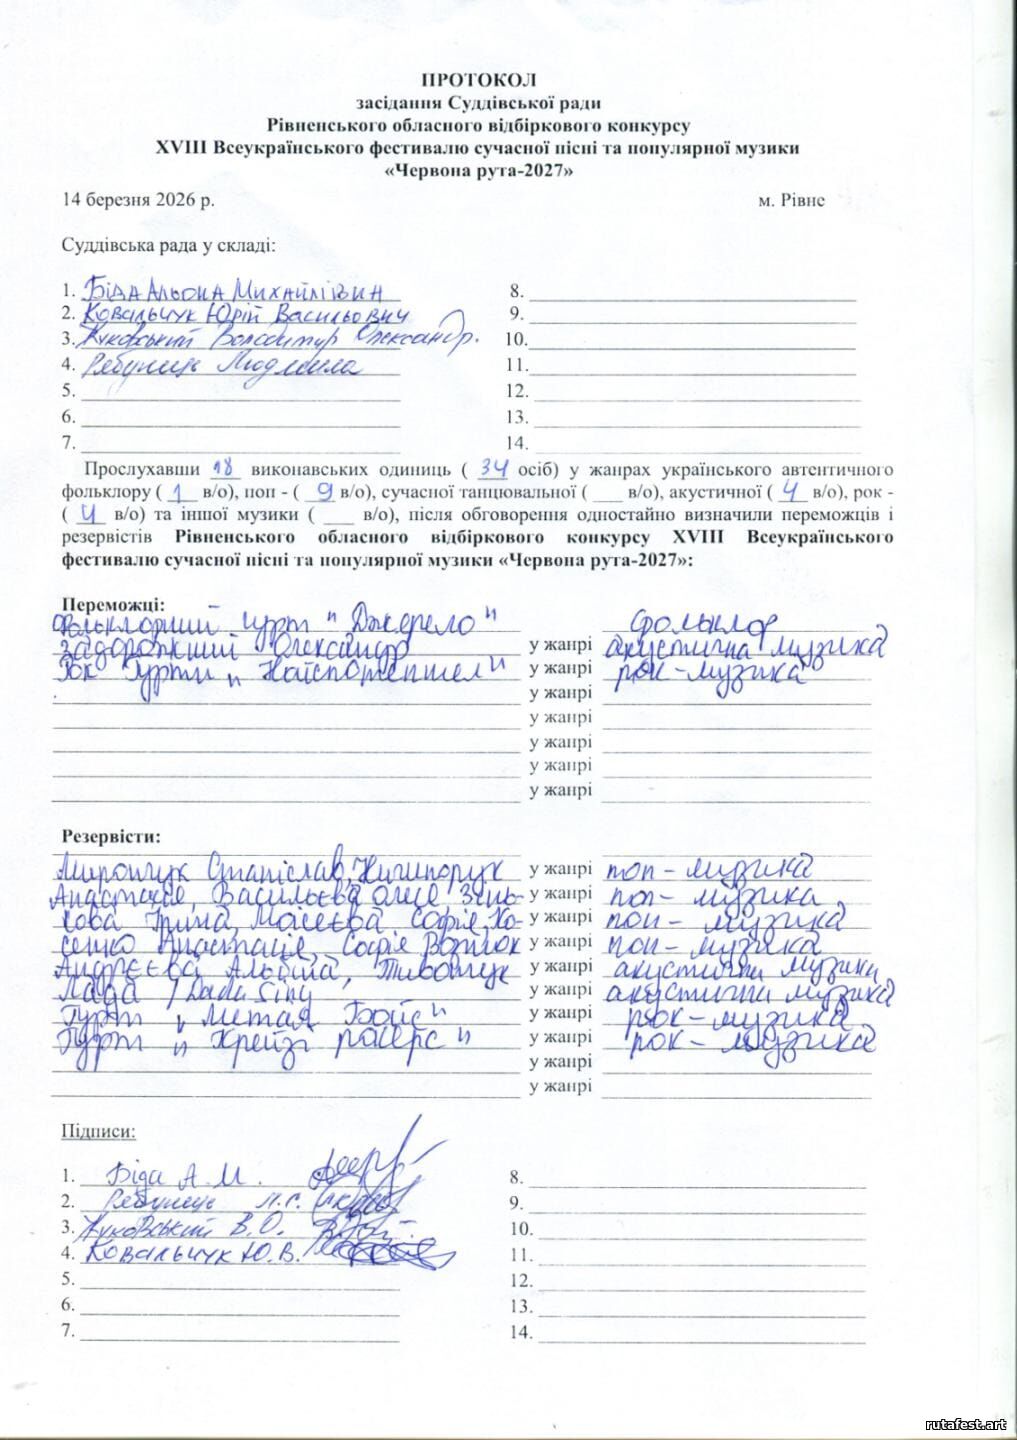 ПРОТОКОЛ
засідання Суддівської ради
Рівненського обласного відбіркового конкурсу
XVIII Всеукраїнського фестивалю сучасної пісні та популярної музики
«Червона рута-2027»
14 березня 2026 р. м. Рівне
Суддівська рада у складі:
1. Біда Альона Михайлівна 8.
2. Ковальчук Юрій Васильович 9.
3. Жуковський Володимир Олександр. 10.
4. Рябунець Людмила 11.
5. 12.
6. 13.
7. 14.
Прослухавши 18 виконавських одиниць ( 34 осіб) у жанрах українського автентичного
фольклору ( 1 в/о), поп - ( 9 в/о), сучасної танцювальної ( в/о), акустичної ( 4 в/о), рок -
( 4 в/о) та іншої музики ( в/о), після обговорення одностайно визначили переможців і
резервістів Рівненського обласного відбіркового конкурсу XVIII Всеукраїнського
фестивалю сучасної пісні та популярної музики «Червона рута-2027»:
Переможці:
Фольклорний гурт "Джерело" фольклор
Задорожний Олександр у жанрі акустична музика
Рок Гурт „ " у жанрі рок-музика
у жанрі
у жанрі
у жанрі
у жанрі
у жанрі
Резервісти:
Мирончук Станіслав, Ничипорук у жанрі поп - музика
Анастасія, Васильєва Зень- у жанрі поп - музика
кова Ірина, Моісеєва Софія, Ко- у жанрі поп - музика
сенко Анастасія, Софія у жанрі поп - музика
Андрєєва Альбіна, у жанрі акустична музика
Лада / у жанрі акустична музика
Гурт „ Метал Бойс" у жанрі рок - музика
Гурт „ Крейзі расерс" у жанрі рок - музика
у жанрі
у жанрі
Підписи:
1. Біда А.М. 8.
2. Рябунець Л.С. 9.
3. Жуковський В.О. 10.
4. Ковальчук Ю.В. 11.
5. 12.
6. 13.
7. 14.
rutafest.art